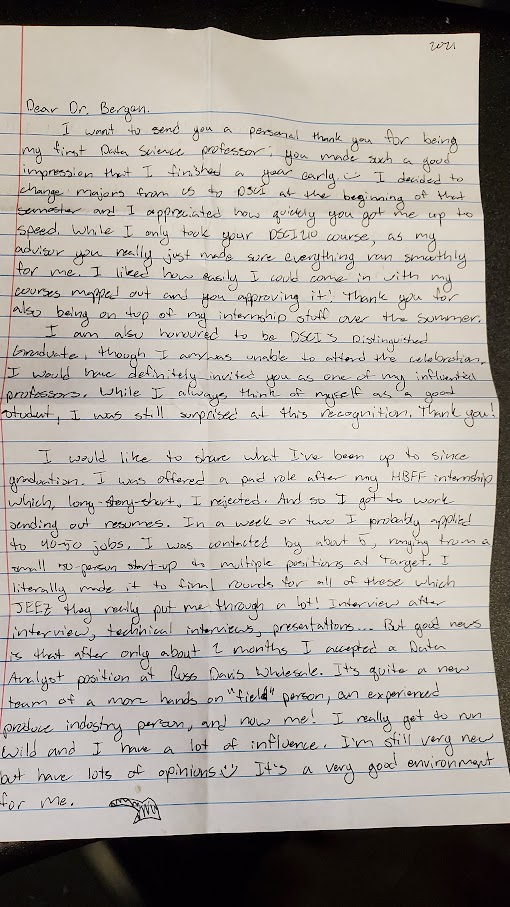 2021
Dear Dr. Bergen.
I want to send you a personal thank you for being
my first Data Science professor; you made such a good
impression that I finished a year early :) I decided to
change majors from CS to DSCI at the beginning of that
semester and I appreciated how quickly you got me up to
speed. While I only took your DSCI 210 course, as my
advisor you really just made sure everything ran smoothly
for me. I liked how easily I could come in with my
courses mapped out and you approving it! Thank you for
also being on top of my internship stuff over the summer.
I am also honoured to be DSCI's Distinguished
Graduate, though I was unable to attend the celebration.
I would have definitely invited you as one of my influential
professors. While I always think of myself as a good
student, I was still surprised at this recognition. Thank you!
I would like to share what I've been up to since
graduation. I was offered a paid role after my HBFF internship
which, long-story-short, I rejected. And so I got to work
sending out resumes. In a week or two I probably applied
to 40-50 jobs. I was contacted by about 5, ranging from a
small 50-person start-up to multiple positions at Target. I
literally made it to final rounds for all of these which
JEEZ they really put me through a lot! Interview after
interview, technical interviews, presentations... But good news
is that after only about 2 months I accepted a Data
Analyst position at Russ Davis Wholesale. It's quite a new
team of a more hands on "field" person, an experienced
produce industry person, and now me! I really get to run
wild and I have a lot of influence. I'm still very new
but have lots of opinions :) It's a very good environment
for me.